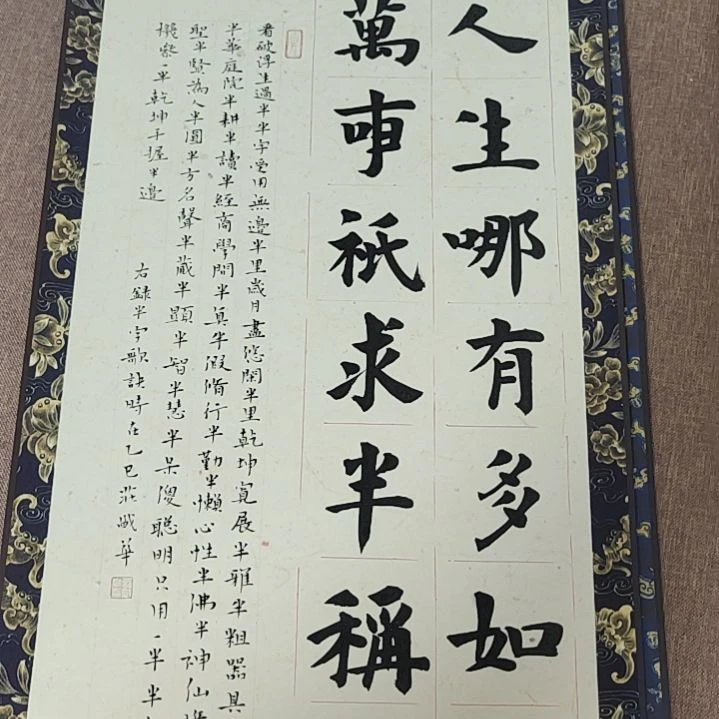 人生哪有多如
萬事祇求半稱
看破浮生過半半字受用無邊半里歲月盡悠閑半里乾坤寬展半雅半粗器具
半華庭院半耕半讀半經商學問半真半假脩行半勤半懶心性半沸半神仙
聖半賢為人半圓半方名聲半藏半顯半智半慧半呆傻聰明只用一半半
機參一半乾坤手握半邊
右錄半字歌訣時在乙巳莊咸華